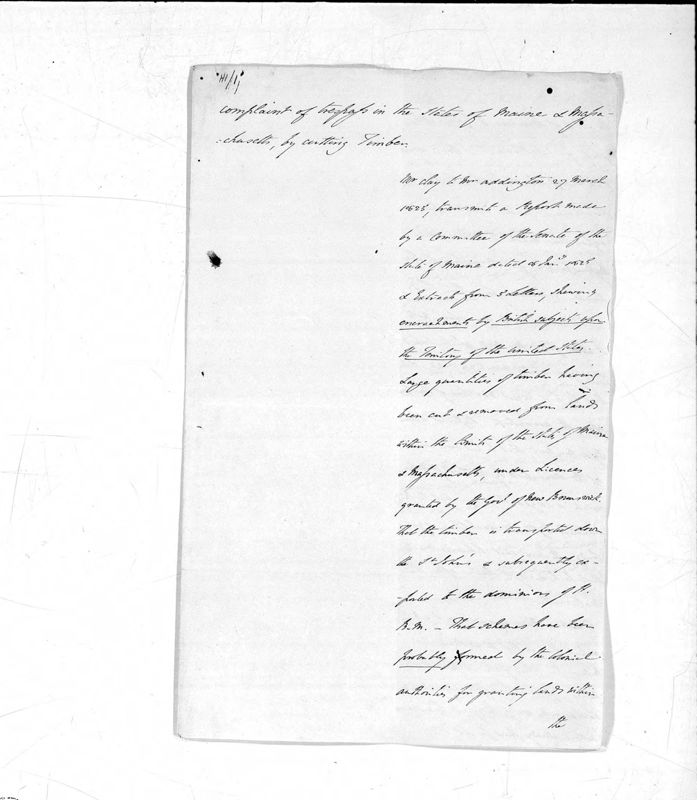 complaint of trespass in the States of Maine & Massa-
-chusetts, by cutting Timber.
Mr Clay to Mr Addington 27 March
1825, transmits a Report made
by a Committee of the Senate of the
State of Maine dated 18 Jany 1825
& Extracts from 3 Letters, shewing
encroachments by British subjects upon
the Territory of the United States
Large quantities of timber having
been cut & removed from lands
within the limits of the State of Maine
& Massachusetts, under Licences
granted by the Govt of New Brunswick
That the timber is transported down
the St John's & subsequently ex-
-ported to the dominions of H.
B.M. – That schemes have been
probably formed by the Colonial
authorities for granting lands within
the